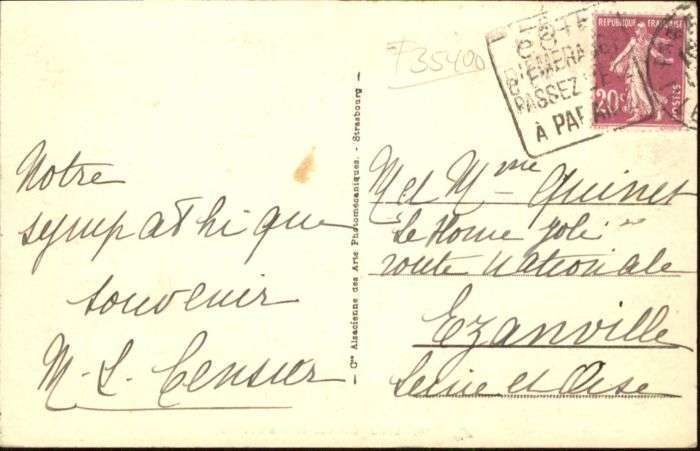 Notre
sympathique
souvenir
M-L. Censier
— Cie Alsacienne des Arts Photomécaniques. - Strasbourg —
F35400
PASSEZ
À PAR
REPUBLIQUE FRANÇAISE
20c
POSTES
M et Mme Quinet
"Le Home Joli"
route Nationale
Ezanville
Seine et Oise